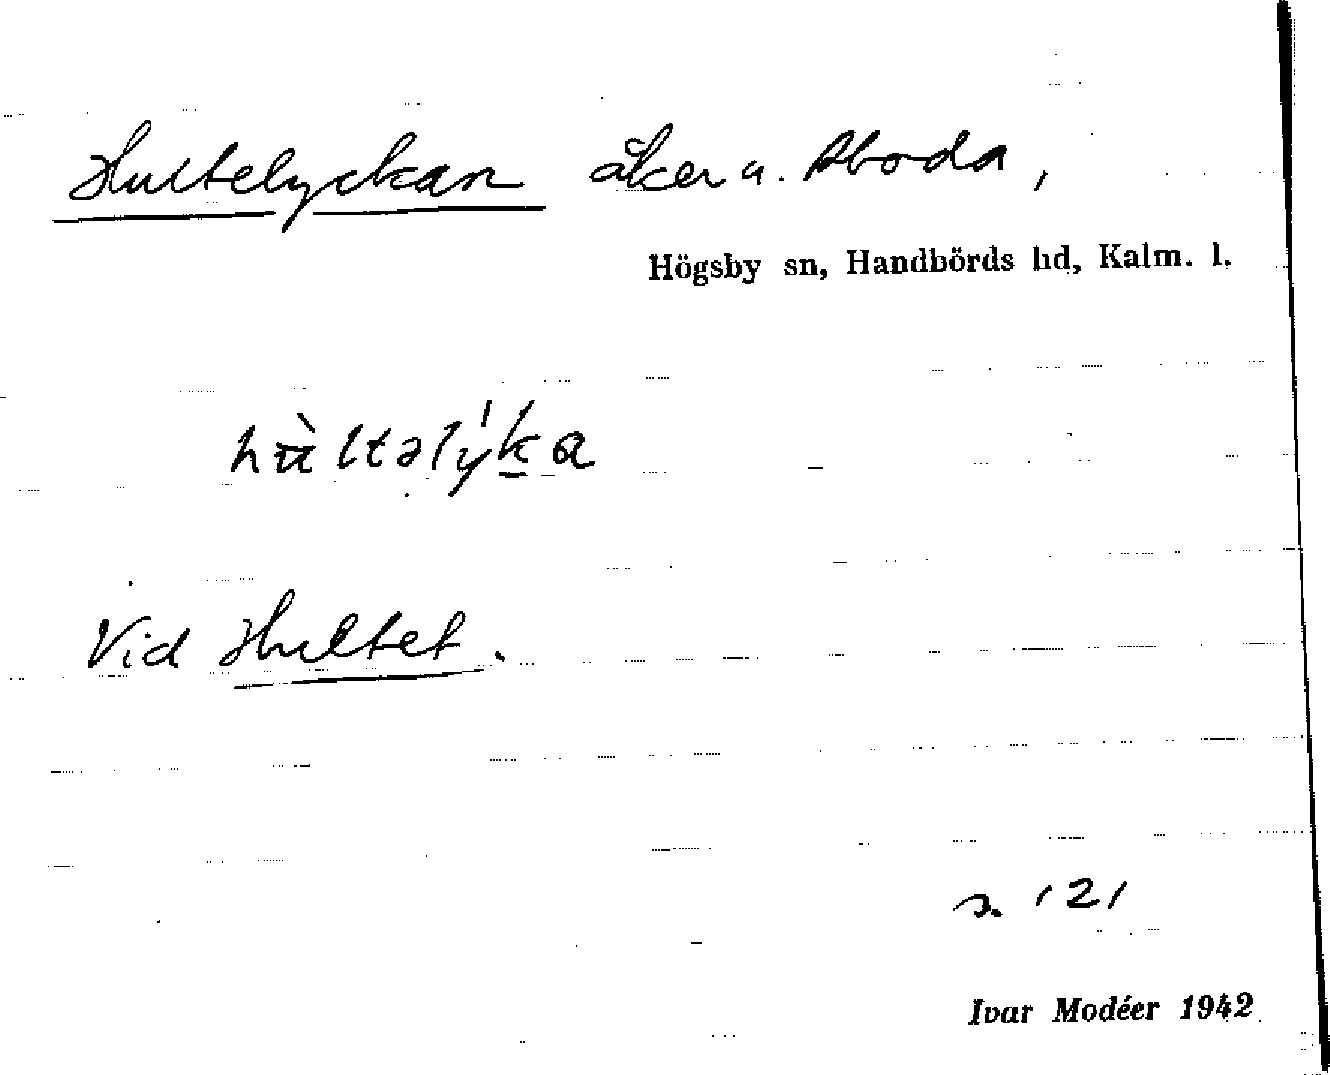 Hultelyckan åker u. Aboda,
Högsby sn, Handbörds hd, Kalm. l.
hùltəlýka
Vid Hultet.
s. 121
Ivar Modéer 1942